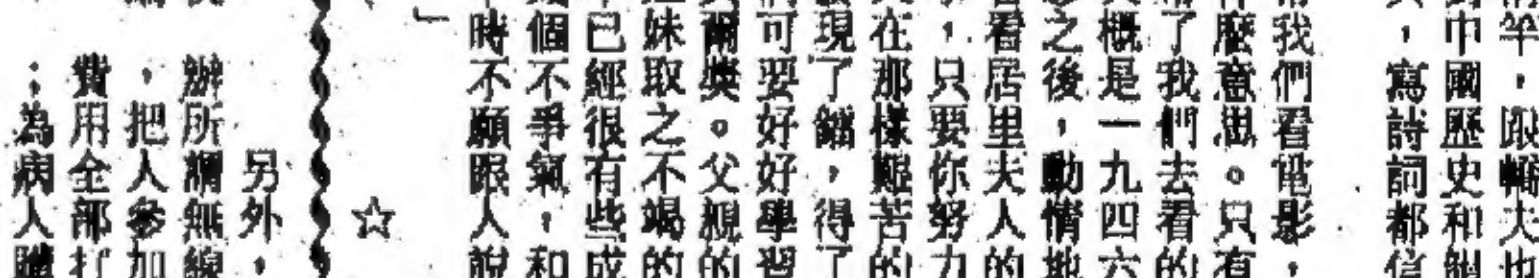 竿，跟轎夫也
中國歷史和
，寫詩詞都
我們看電影，
麼意思。只有
了我們去看的
概是一九四六
之後，動情地
看居里夫人的
，只要你努力
在那樣艱苦的
現了鐳，得了
可要好好學習
爾獎。父親的
妹取之不竭的
已經很有些成
個不爭氣，和
時不願跟人說
」
☆
另外，
辦所謂無線
，把人參加
費用全部打
；為病人